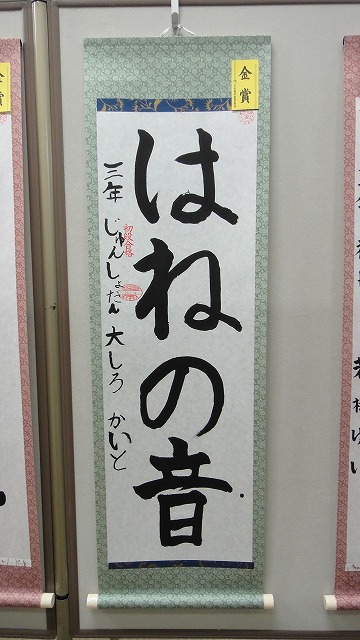 金賞
はねの音
三年 じゅんしょだん 大しろ かいと
初段合格